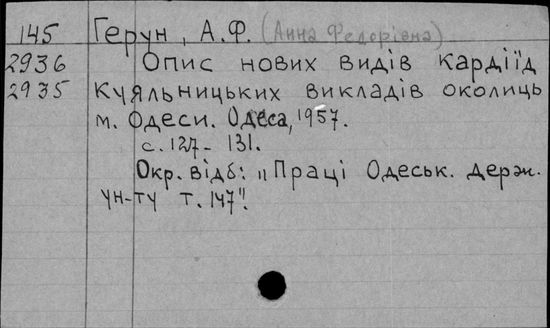 145 Герун, А.Ф. (Анна Федорівна)
2936 Опис нових видів кардіїд
2935 Куяльницьких викладів околиць
м. Одеси. Одеса, 1957.
с. 127-131.
Окр. відб: „Праці Одеськ. держ.
ун-ту т. 147".